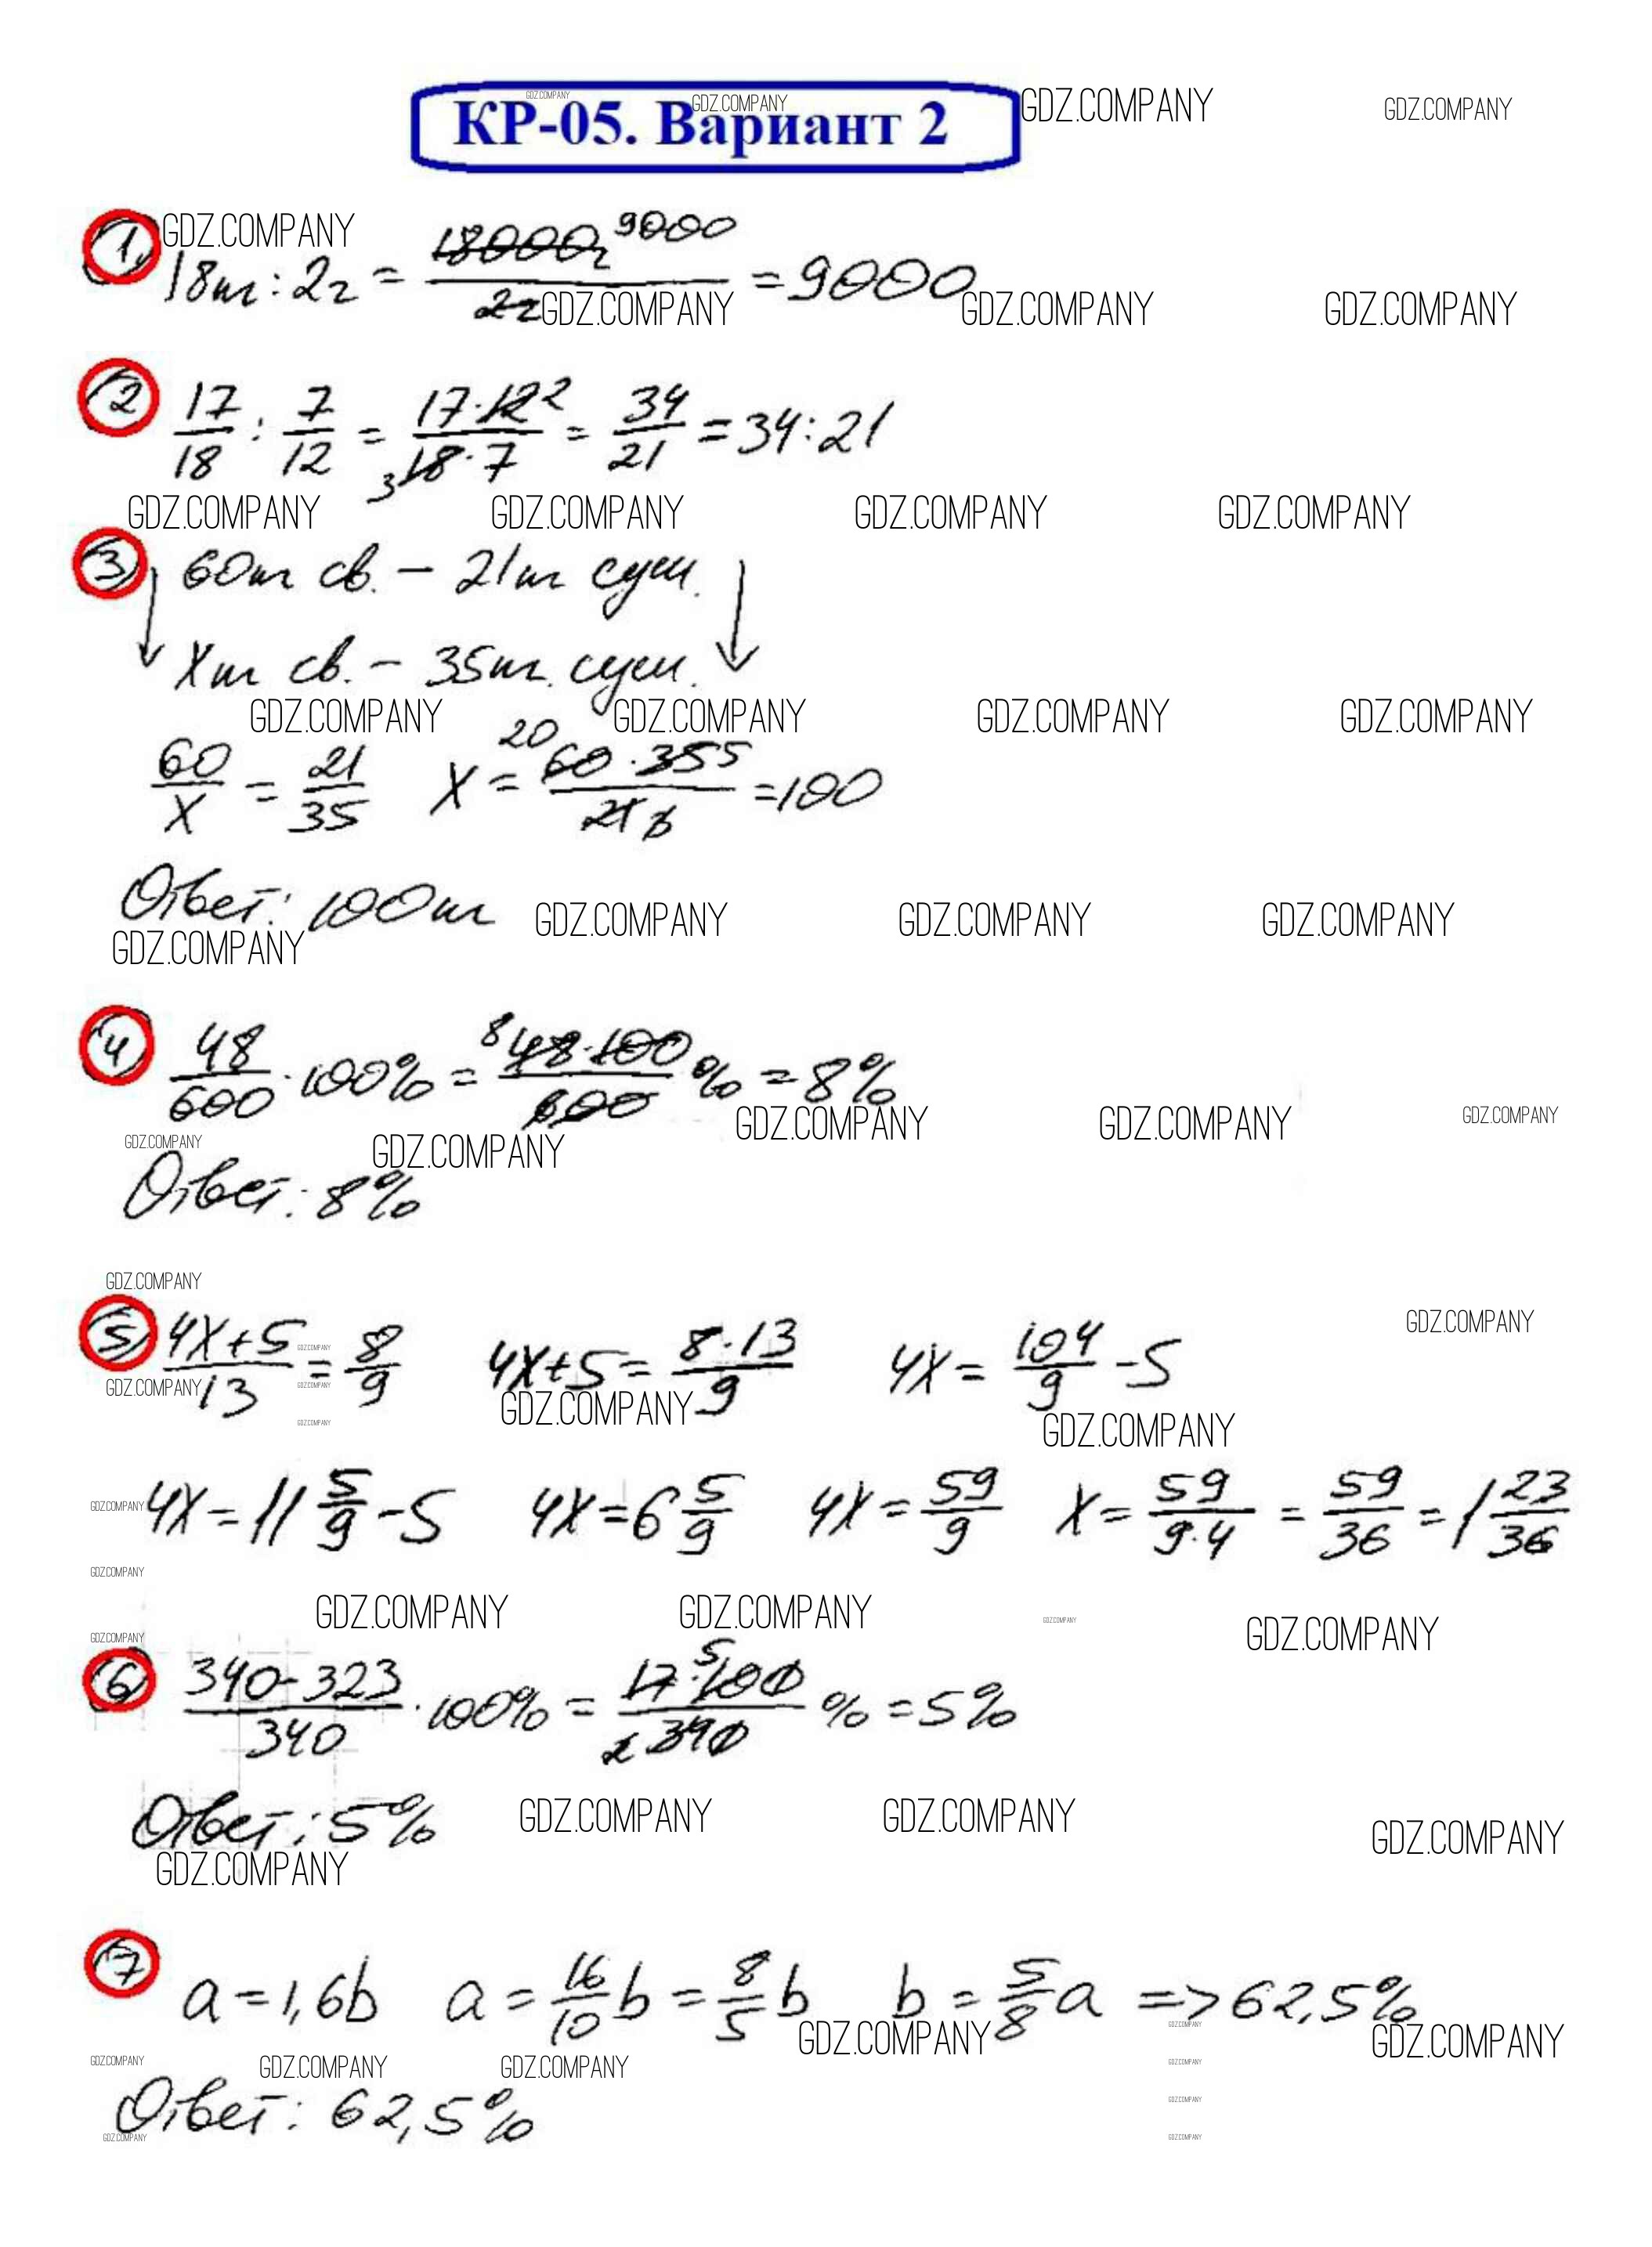 КР-05. Вариант 2
GDZ.COMPANY GDZ.COMPANY GDZ.COMPANY GDZ.COMPANY
1 GDZ.COMPANY
18т : 2г = 18000г 9000 / 2г = 9000
GDZ.COMPANY GDZ.COMPANY GDZ.COMPANY
2 17/18 : 7/12 = 17·12 2 / 3 18·7 = 34/21 = 34:21
GDZ.COMPANY GDZ.COMPANY GDZ.COMPANY GDZ.COMPANY
3 60т св. – 21т суш.
Xт св. – 35т. суш.
GDZ.COMPANY GDZ.COMPANY GDZ.COMPANY GDZ.COMPANY
60/X = 21/35 X = 20 60·35 5 / 21 3 = 100
Ответ: 100т GDZ.COMPANY GDZ.COMPANY GDZ.COMPANY
GDZ.COMPANY
4 48/600 · 100% = 8 48·100 / 600 % = 8%
GDZ.COMPANY GDZ.COMPANY GDZ.COMPANY
GDZ.COMPANY GDZ.COMPANY
Ответ: 8%
GDZ.COMPANY
GDZ.COMPANY
5 4X+5/13 = 8/9 4X+5 = 8·13/9 4X = 104/9 – 5
GDZ.COMPANY
GDZ.COMPANY GDZ.COMPANY GDZ.COMPANY
GDZ.COMPANY GDZ.COMPANY
GDZ.COMPANY 4X = 11 5/9 – 5 4X = 6 5/9 4X = 59/9 X = 59/9·4 = 59/36 = 1 23/36
GDZ.COMPANY
GDZ.COMPANY GDZ.COMPANY GDZ.COMPANY GDZ.COMPANY
GDZ.COMPANY
6 340–323/340 · 100% = 17·5 100 / 340 % = 5%
Ответ: 5% GDZ.COMPANY GDZ.COMPANY GDZ.COMPANY
GDZ.COMPANY
7 a = 1,6b a = 16/10 b = 8/5 b b = 5/8 a => 62,5%
GDZ.COMPANY GDZ.COMPANY GDZ.COMPANY
GDZ.COMPANY GDZ.COMPANY GDZ.COMPANY GDZ.COMPANY
Ответ: 62,5% GDZ.COMPANY
GDZ.COMPANY GDZ.COMPANY